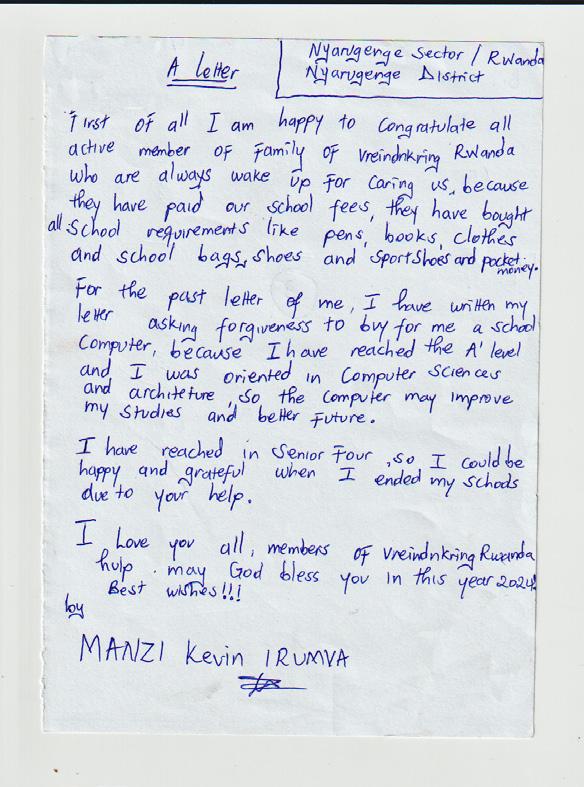 A Letter
Nyarugenge Sector / Rwanda
Nyarugenge District
First of all I am happy to congratulate all
active member of Family of Vreindnkring Rwanda
who are always wake up for caring us, because
they have paid our school fees, they have bought
all School requirements like pens, books, clothes
and school bags, shoes and sportshoes and pocket
money.
For the past letter of me, I have written my
letter asking forgiveness to buy for me a school
Computer, because I have reached the A' level
and I was oriented in Computer Sciences
and architeture, so the computer may improve
my studies and better future.
I have reached in Senior Four, so I could be
happy and grateful when I ended my schools
due to your help.
I Love you all, members of Vreindnkring Rwanda
hulp. may God bless you in this year 2024!
Best wishes!!!
by
MANZI Kevin IRUMVA